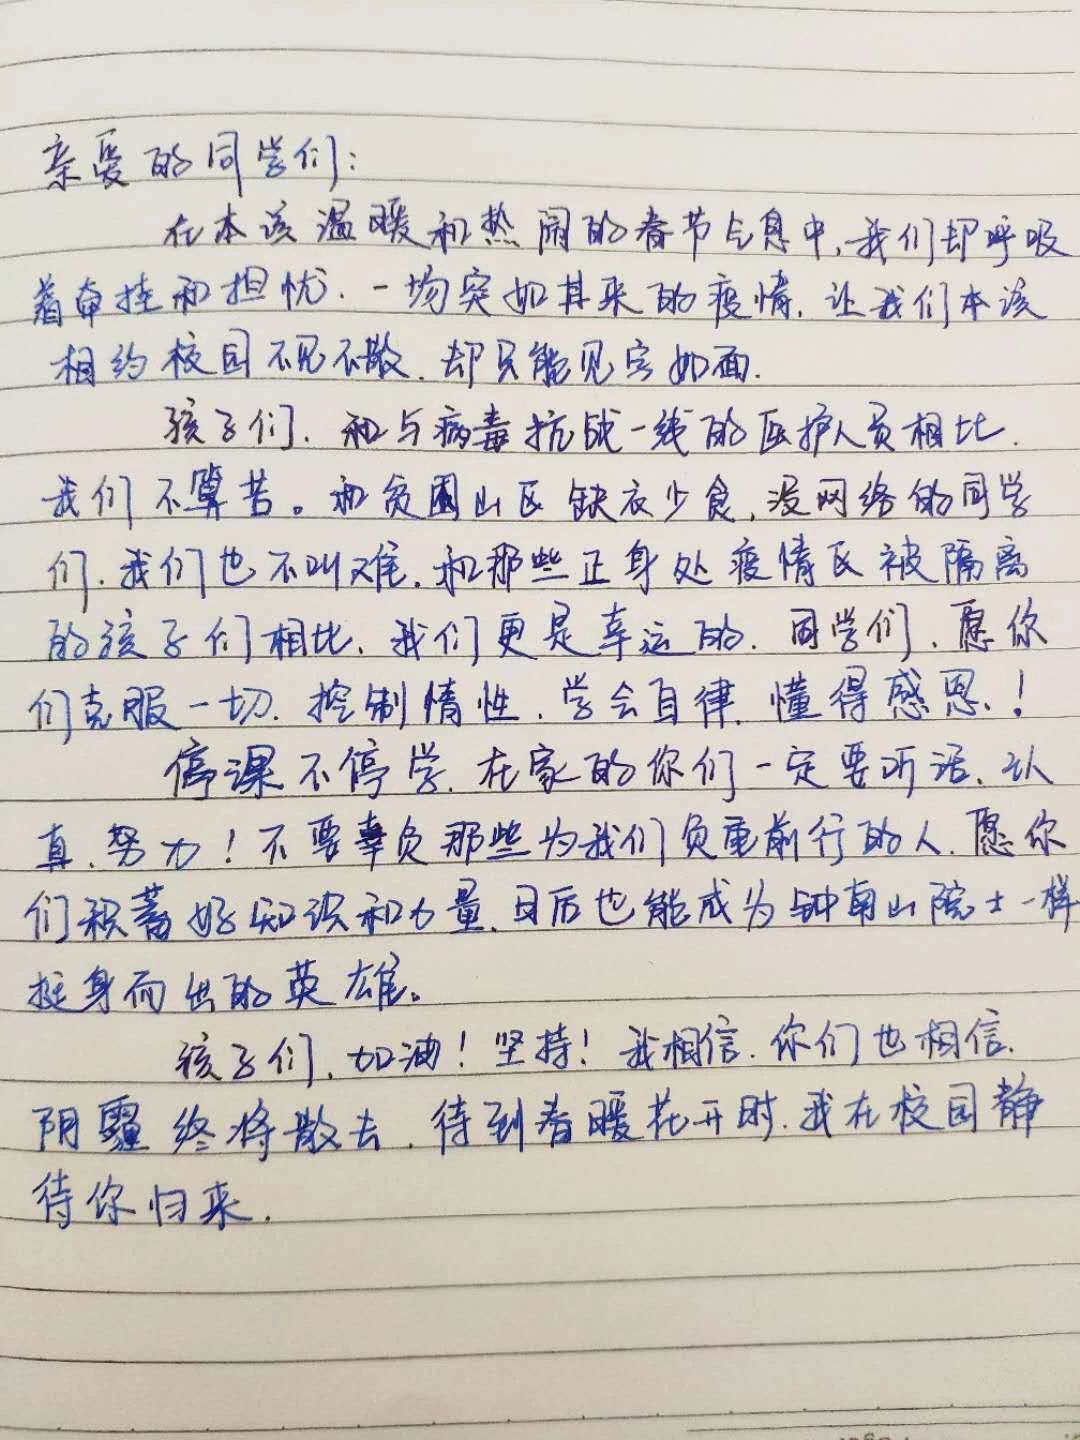 亲爱的同学们:
在本该温暖和热闹的春节气息中,我们却呼吸
着牵挂和担忧.一场突如其来的疫情,让我们本该
相约校园不见不散,却只能见字如面.
孩子们,和与病毒抗战一线的医护人员相比,
我们不算苦。和贫困山区缺衣少食,没网络的同学
们,我们也不叫难,和那些正身处疫情区被隔离
的孩子们相比,我们更是幸运的.同学们,愿你
们克服一切,控制惰性,学会自律,懂得感恩!
停课不停学,在家的你们一定要听话、认
真、努力!不要辜负那些为我们负重前行的人.愿你
们积蓄好知识和力量,日后也能成为钟南山院士一样
挺身而出的英雄。
孩子们,加油!坚持!我相信,你们也相信,
阴霾终将散去,待到春暖花开时,我在校园静
待你归来.